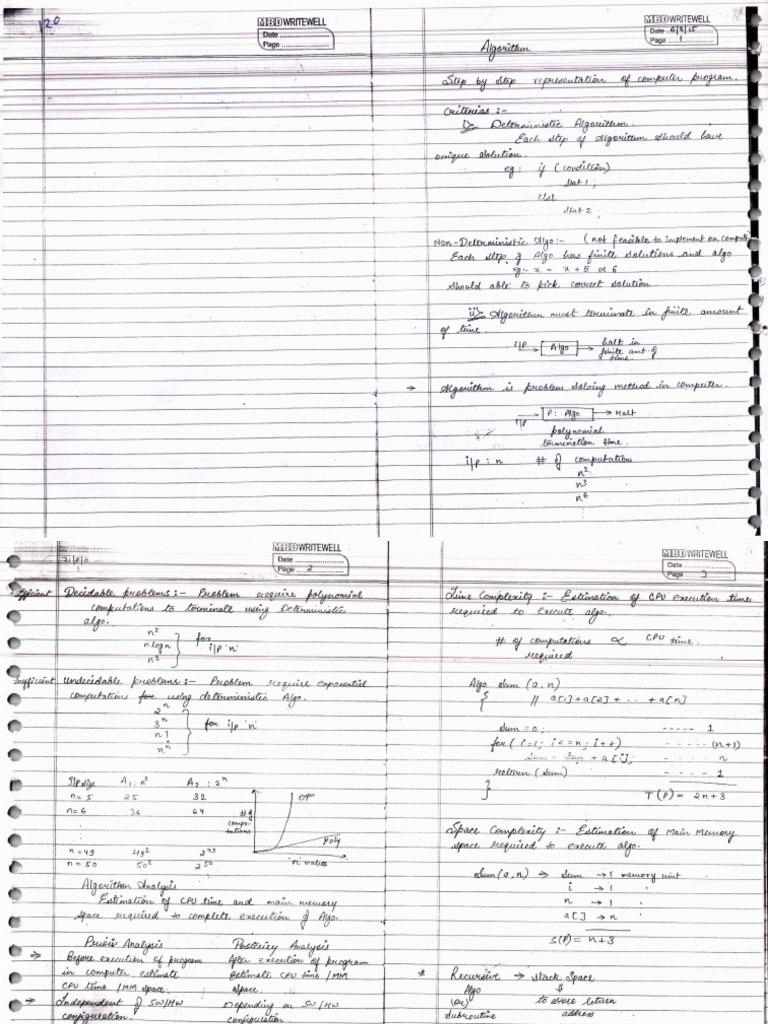 120
MBD WRITEWELL
Date
Page
MBD WRITEWELL
Date
Page 1
Algorithm
Step by Step representation of computer program.
Criterias :-
i> Deterministic Algorithm.
Each step of Algorithm should have
unique solution.
eg: if (condition)
stat 1;
else
stat 2;
Non-Deterministic Algo:- (not feasible to implement on computer
Each step of Algo has finite solutions and algo
eg:- x = x + 5 or 6
should able to pick correct solution.
ii> Algorithm must terminate in finite amount
of time.
i/p Algo halt in
finite amt. of
time.
→ Algorithm is problem solving method in computer.
i/p P: Algo → Halt
polynomial
termination time.
i/p : n # of computations
n²
n³
n⁶
MBD WRITEWELL
Date
Page 2
Efficient Decidable problems:- Problem require polynomial
computations to terminate using Deterministic
algo.
n²
n log n
n³
for
i/p 'n'
Inefficient undecidable problems:- Problem require exponential
computations for using deterministic Algo.
2ⁿ
3ⁿ
n!
nⁿ
for i/p 'n'
I/p size A₁ : n² A₂ : 2ⁿ
n=5 25 32
n=6 36 64
n=49 49² 2⁴⁹
n=50 50² 2⁵⁰
# of
compu-
tations
expo
poly
'n' values
Algorithm Analysis
Estimation of CPU time and main memory
space required to complete execution of Algo.
Priori Analysis Posteriory Analysis
→ Before execution of program After execution of program
in computer estimate Estimate CPU time / MM
CPU time / MM space. space.
→ Independent of SW/HW Depending on SW/HW
configuration. configuration
MBD WRITEWELL
Date
Page 3
Time Complexity :- Estimation of CPU execution time
required to execute algo.
# of computations ∝ CPU time.
required
Algo Sum (a, n)
{ // a[1]+a[2]+...+a[n]
Sum = 0; ----- 1
for( i=1; i<=n; i++) ----- (n+1)
Sum = Sum + a[i]; ----- n
return (sum) ----- 1
}
T(P) = 2n+3
Space Complexity :- Estimation of Main Memory
space required to execute algo.
Sum(a, n) → Sum → 1 memory unit
i → 1 "
n → 1 "
a[] → n
S(P) = n+3
* Recursive → Stack Space
Algo
(or) to store return
Subroutine address